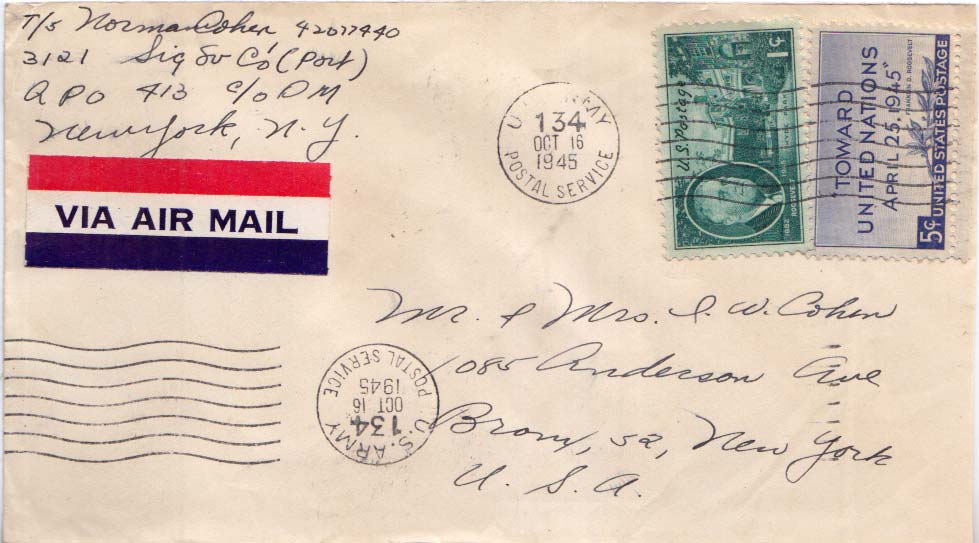 T/5 Norman Cohen 42077440
3121 Sig Sv Co (Port)
APO 413 c/o P M
New York, N. Y.
VIA AIR MAIL
U.S. ARMY
134
OCT 16
1945
POSTAL SERVICE
U.S. Postage
1¢
1882 ROOSEVELT
"TOWARD
UNITED NATIONS
APRIL 25, 1945"
FRANKLIN D. ROOSEVELT
5¢ UNITED STATES POSTAGE
Mr. & Mrs. I. W. Cohen
1085 Anderson Ave
Bronx, 52, New York
U. S. A.
U.S. ARMY
134
OCT 16
1945
POSTAL SERVICE